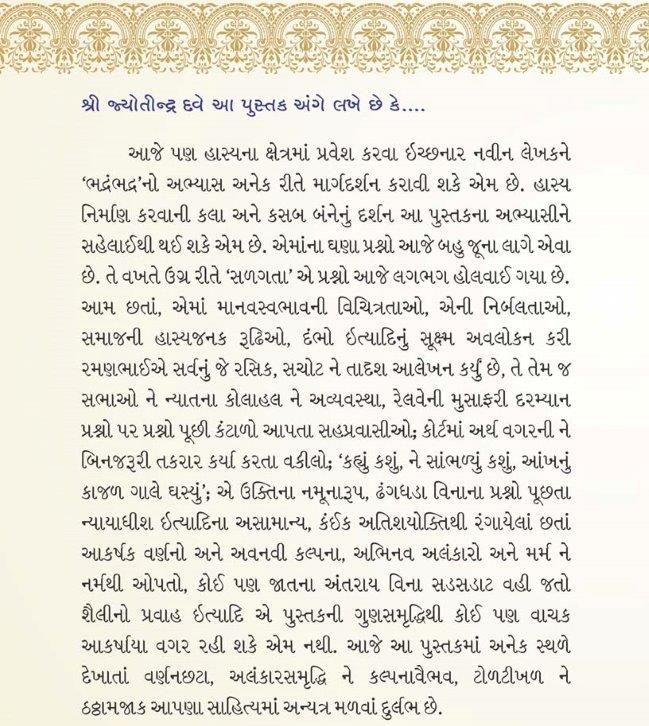 શ્રી જ્યોતીન્દ્ર દવે આ પુસ્તક અંગે લખે છે કે....
આજે પણ હાસ્યના ક્ષેત્રમાં પ્રવેશ કરવા ઇચ્છનાર નવીન લેખકને
‘ભદ્રંભદ્ર’નો અભ્યાસ અનેક રીતે માર્ગદર્શન કરાવી શકે એમ છે. હાસ્ય
નિર્માણ કરવાની કલા અને કસબ બંનેનું દર્શન આ પુસ્તકના અભ્યાસીને
સહેલાઈથી થઈ શકે એમ છે. એમાંના ઘણા પ્રશ્નો આજે બહુ જૂના લાગે એવા
છે. તે વખતે ઉગ્ર રીતે ‘સળગતા’ એ પ્રશ્નો આજે લગભગ હોલવાઈ ગયા છે.
આમ છતાં, એમાં માનવસ્વભાવની વિચિત્રતાઓ, એની નિર્બલતાઓ,
સમાજની હાસ્યજનક રૂઢિઓ, દંભો ઇત્યાદિનું સૂક્ષ્મ અવલોકન કરી
રમણભાઈએ સર્વનું જે રસિક, સચોટ ને તાદૃશ આલેખન કર્યું છે, તે તેમ જ
સભાઓ ને ન્યાતના કોલાહલ ને અવ્યવસ્થા, રેલવેની મુસાફરી દરમ્યાન
પ્રશ્નો પર પ્રશ્નો પૂછી કંટાળો આપતા સહપ્રવાસીઓ; કોર્ટમાં અર્થ વગરની ને
બિનજરૂરી તકરાર કર્યા કરતા વકીલો; ‘કહ્યું કશું, ને સાંભળ્યું કશું, આંખનું
કાજળ ગાલે ઘસ્યું’; એ ઉક્તિના નમૂનારૂપ, ઢંગધડા વિનાના પ્રશ્નો પૂછતા
ન્યાયાધીશ ઇત્યાદિના અસામાન્ય, કંઈક અતિશયોક્તિથી રંગાયેલાં છતાં
આકર્ષક વર્ણનો અને અવનવી કલ્પના, અભિનવ અલંકારો અને મર્મ ને
નર્મથી ઓપતો, કોઈ પણ જાતના અંતરાય વિના સડસડાટ વહી જતો
શૈલીનો પ્રવાહ ઇત્યાદિ એ પુસ્તકની ગુણસમૃદ્ધિથી કોઈ પણ વાચક
આકર્ષાયા વગર રહી શકે એમ નથી. આજે આ પુસ્તકમાં અનેક સ્થળે
દેખાતાં વર્ણનછટા, અલંકારસમૃદ્ધિ ને કલ્પનાવૈભવ, ટોળટીખળ ને
ઠઠ્ઠામજાક આપણા સાહિત્યમાં અન્યત્ર મળવાં દુર્લભ છે.